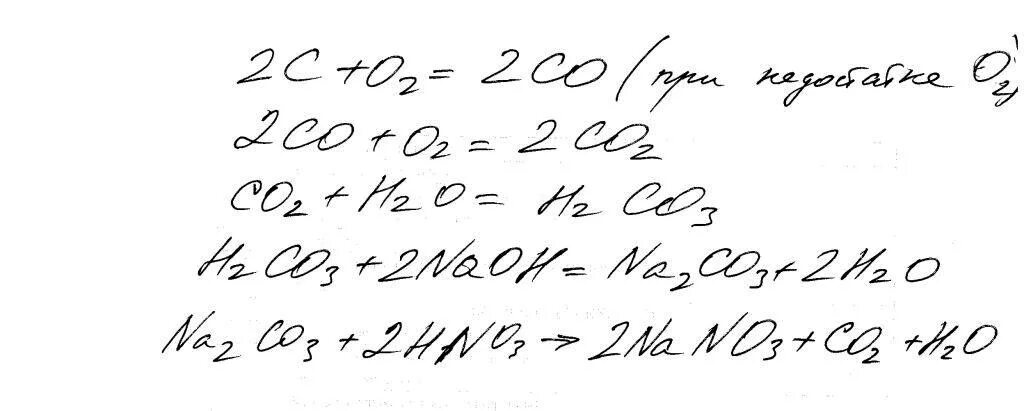 2C + O₂ = 2CO (при недостатке O₂)
2CO + O₂ = 2CO₂
CO₂ + H₂O = H₂CO₃
H₂CO₃ + 2NaOH = Na₂CO₃ + 2H₂O
Na₂CO₃ + 2HNO₃ → 2NaNO₃ + CO₂ + H₂O